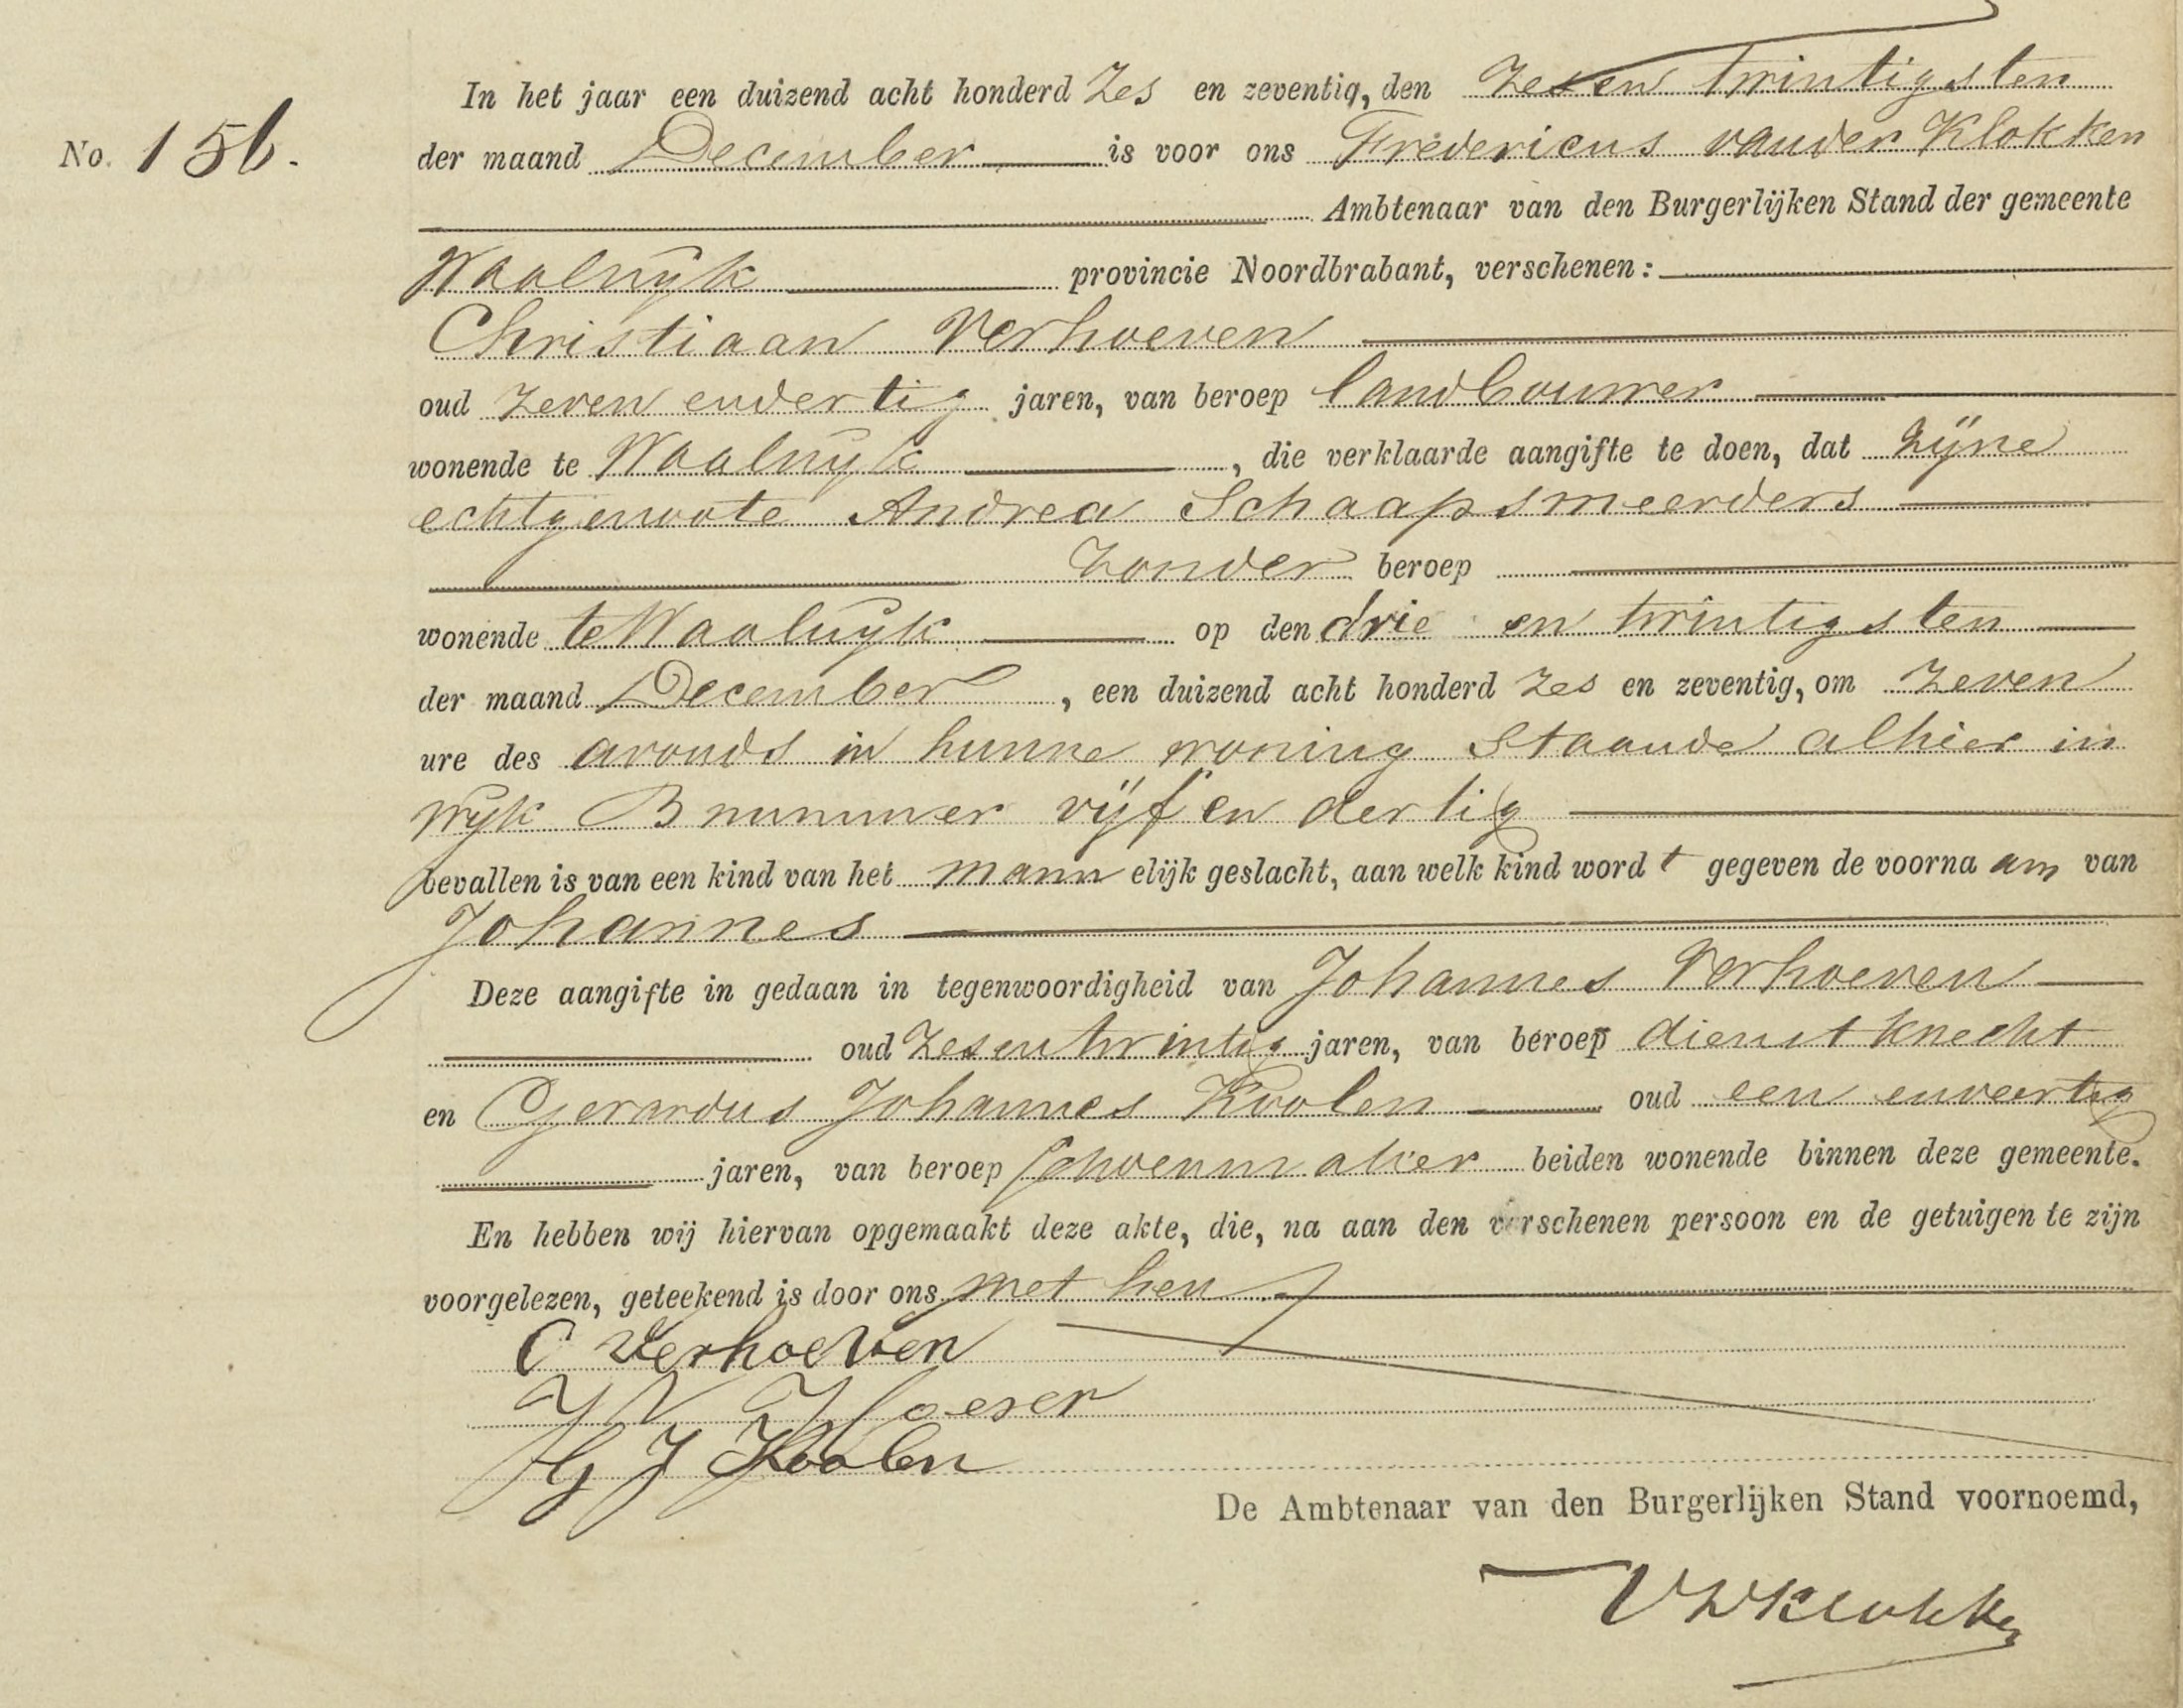 In het jaar een duizend acht honderd Zes en zeventig, den Zes en twintigsten
No. 156. der maand December is voor ons Fredericus vander Klokken
Ambtenaar van den Burgerlijken Stand der gemeente
Waalwijk provincie Noordbrabant, verschenen:
Christiaan Verhoeven
oud Zeven endertig jaren, van beroep landbouwer
wonende te Waalwijk, die verklaarde aangifte te doen, dat Zijne
echtgenoote Andrea Schaapsmeerders
Zonder beroep
wonende te Waalwijk op den drie en twintigsten
der maand December, een duizend acht honderd Zes en zeventig, om Zeven
ure des avonds in hunne woning Staande alhier in
Wijk B nummer vijf en dertig
bevallen is van een kind van het mannelijk geslacht, aan welk kind wordt gegeven de voornaam van
Johannes
Deze aangifte in gedaan in tegenwoordigheid van Johannes Verhoeven
oud Zesentwintig jaren, van beroep dienstknecht
en Gerardus Johannes Koolen oud een enveertig
jaren, van beroep schoenmaker beiden wonende binnen deze gemeente.
En hebben wij hiervan opgemaakt deze akte, die, na aan den verschenen persoon en de getuigen te zijn
voorgelezen, geteekend is door ons met hen
C Verhoeven
G J Koolen
De Ambtenaar van den Burgerlijken Stand voornoemd,
VdKlokken